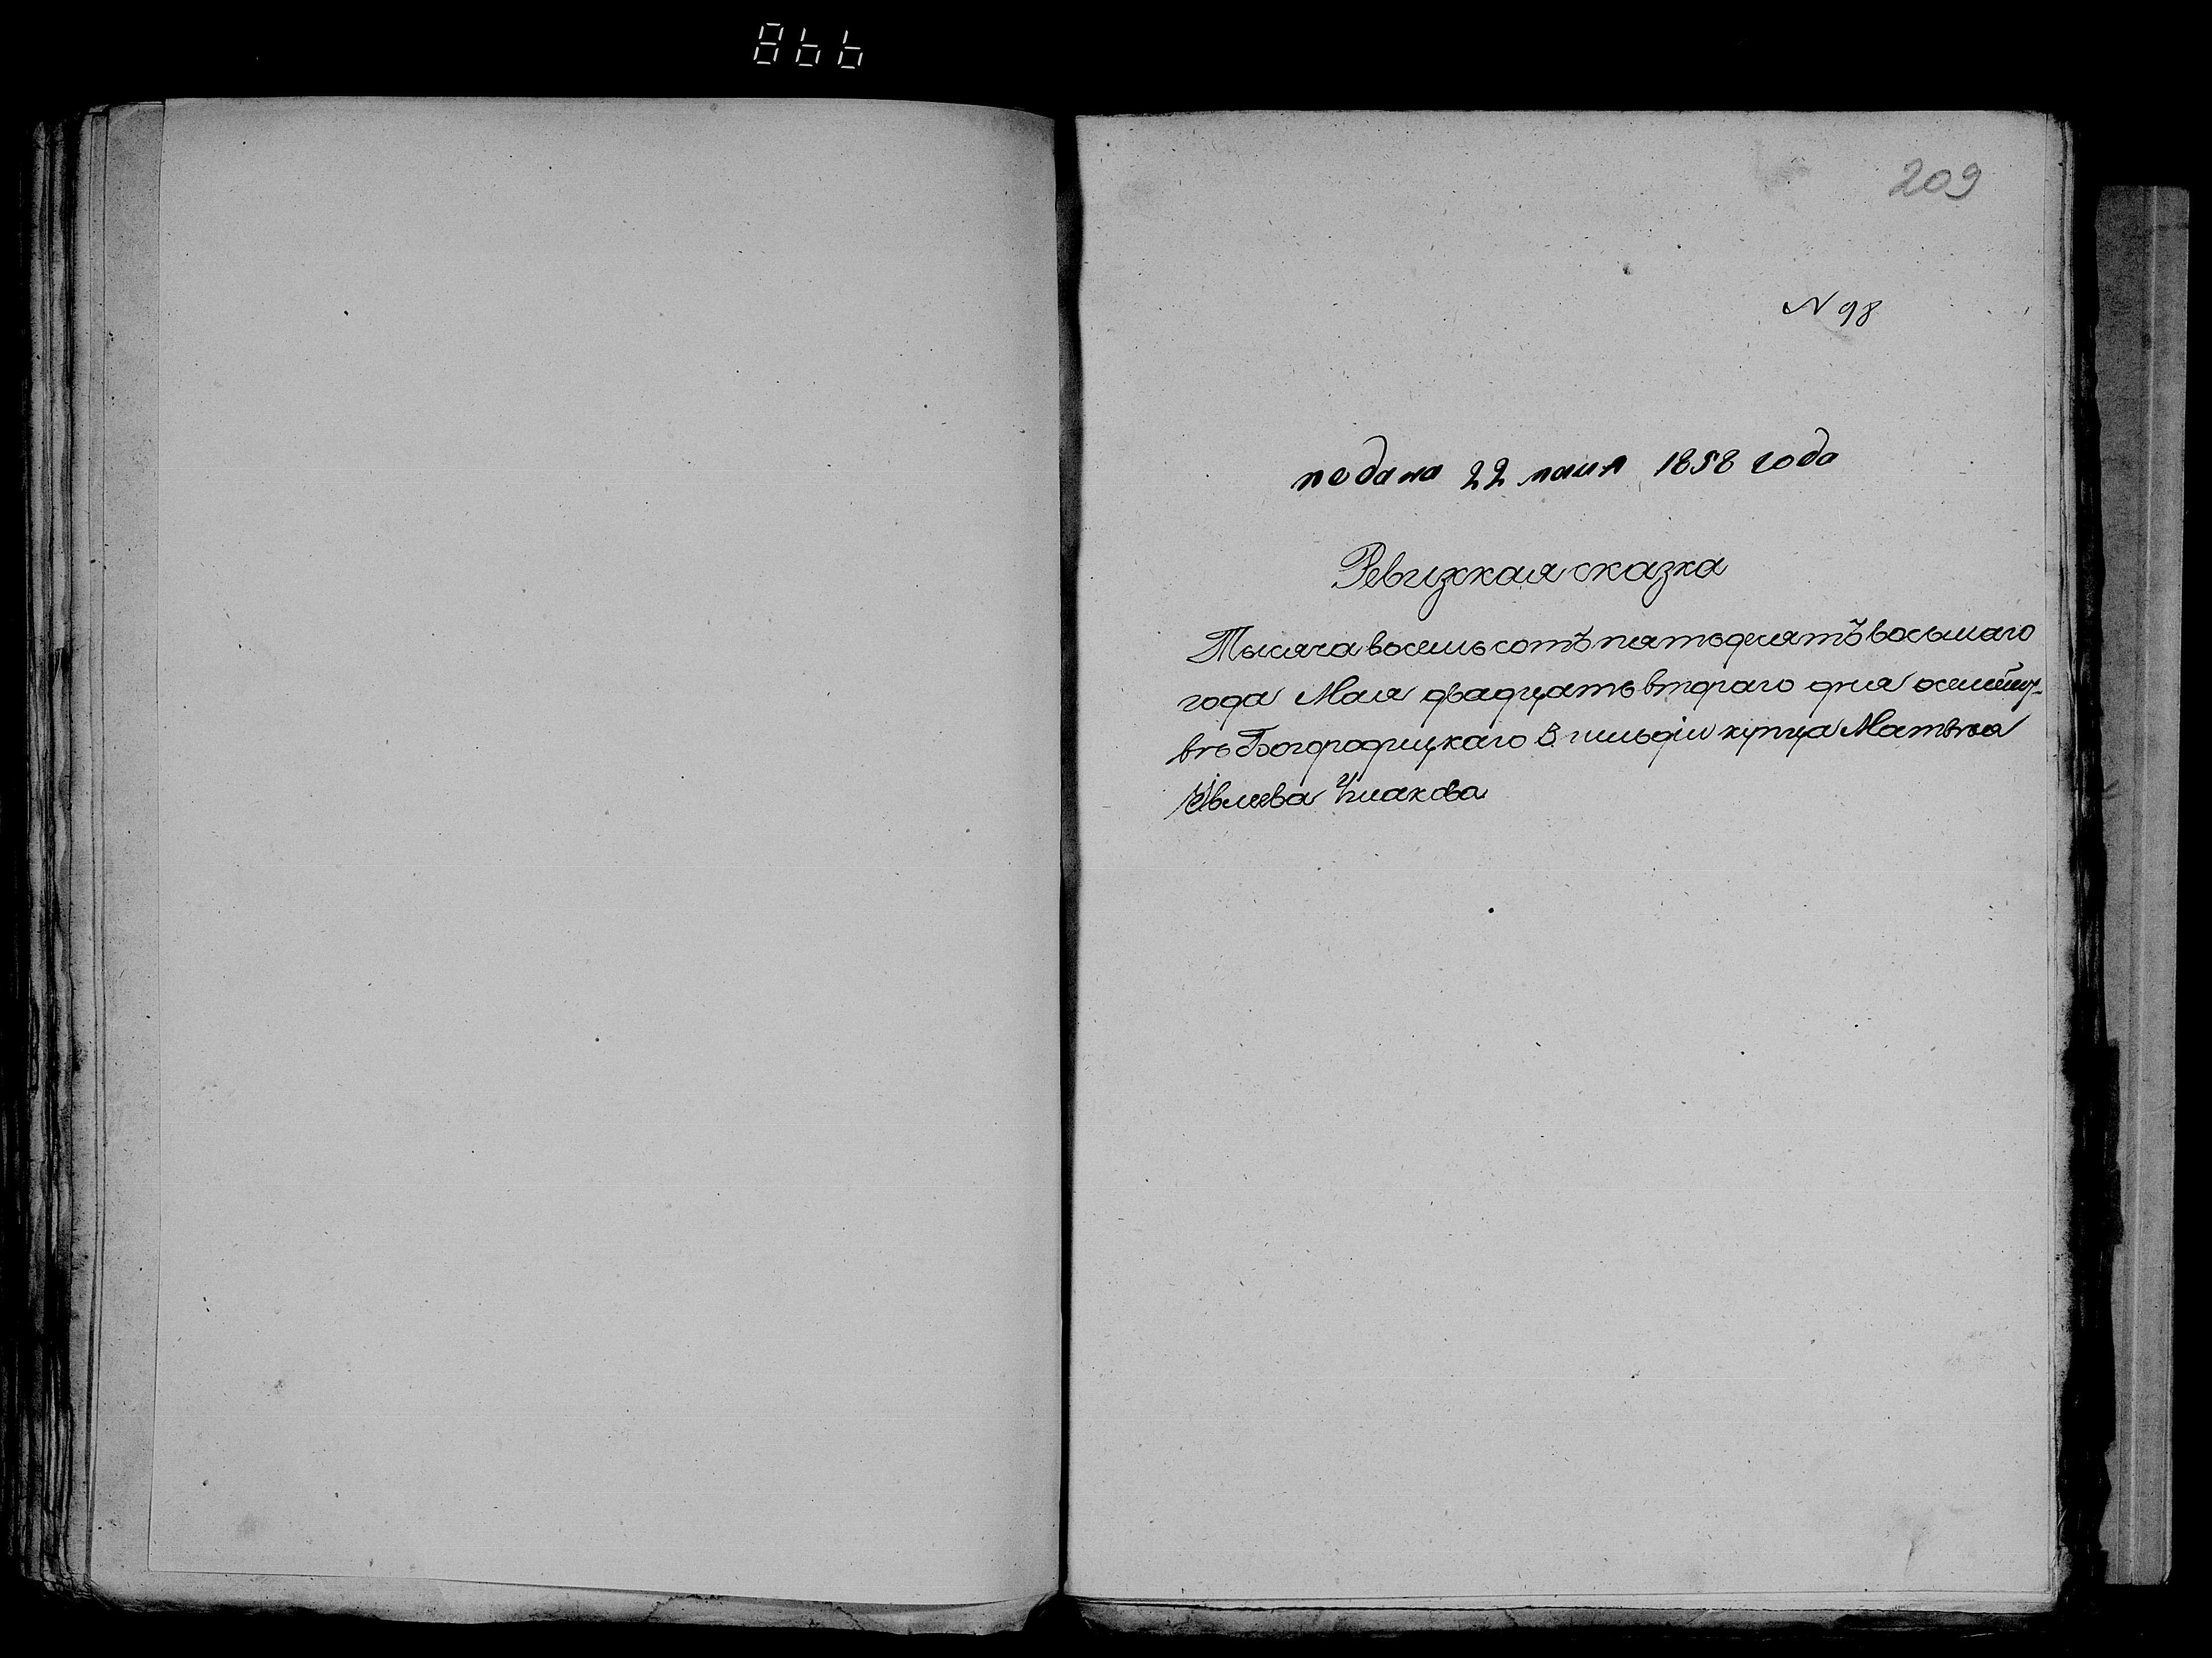 866
209
N 98
подана 22 маия 1858 года
Ревижкая сказка
Тысяча восемь сотъ пятьдесятъ восьмаго
года Маия двадцать втораго дня осемей-
въ Богородицкаго 3 гильдіи купца Матвѣя
Ивлева